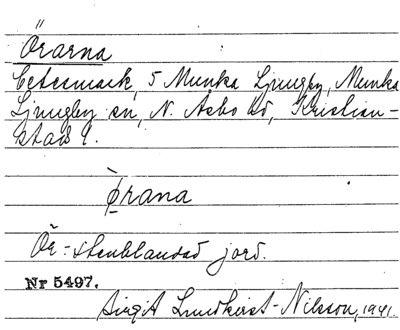 Örarna
Betesmark, 5 Munka Ljungby, Munka
Ljungby sn, N. Åsbo hd, Kristian-
stads l.
ø̀rana
Ör = stenblandad jord.
Nr 5497.
Birgit Lundkvist-Nilsson, 1941.